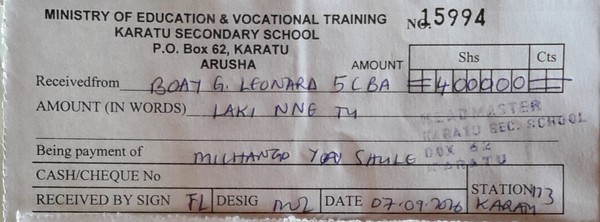 MINISTRY OF EDUCATION & VOCATIONAL TRAINING
KARATU SECONDARY SCHOOL
P.O. Box 62, KARATU
ARUSHA
NO. 15994
AMOUNT Shs Cts
Received from BOAY G. LEONARD 5 CBA =400000=
AMOUNT (IN WORDS) LAKI NNE TU
HEADMASTER
KARATU SEC. SCHOOL
BOX 62
KARATU
Being payment of MICHANGO YA SHULE
CASH/CHEQUE No
RECEIVED BY SIGN DESIG DATE 07.09.2016 STATION KARATU